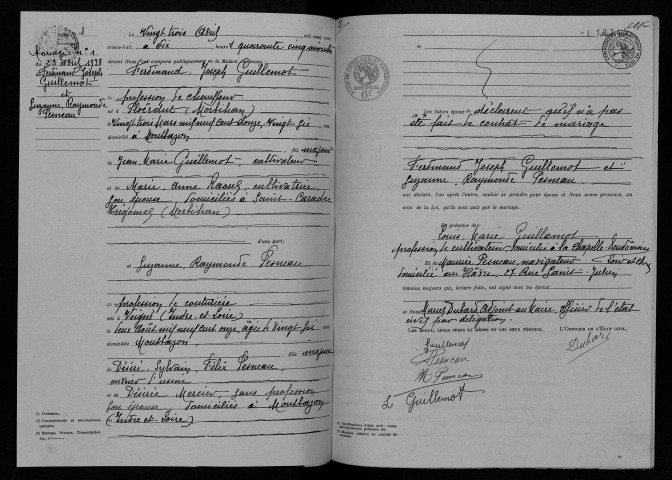 Mariage N° 1
du 23 Avril 1938
Ferdinand Joseph
Guillemot
et
Suzanne, Raymonde
Perneau
Le Vingt trois Avril mil neuf cent
trente-huit, à dix heures quarante cinq minutes
devant Nous ont comparu publiquement en la Maison Commune :
Ferdinand, Joseph Guillemot
profession de chauffeur
né à (Morbihan)
Vingt trois Mars mil neuf cent douze, Vingt six
domicilié à Montbazon
fils majeur
de Jean Marie Guillemot, cultivateur
et de Marie Anne Raoul, cultivatrice,
son épouse, domiciliés à Saint-Caradec
Trégomel (Morbihan)
d'une part;
et Suzanne, Raymonde Perneau
profession de couturière
née à Veigné (Indre et Loire)
deux Août mil neuf cent onze, âgée de vingt six
Montbazon
fille majeure
de Désiré, Sylvain, Félix Perneau,
ouvrier d'usine
et de Désirée Mercier, sans profession
son épouse, domiciliés à Montbazon
(Indre-et-Loire)
(1) Profession.
Les futurs époux déclarent qu'il n'a pas
été fait de contrat de mariage
Ferdinand Joseph Guillemot et
Suzanne, Raymonde Perneau
ont déclaré, l'un après l'autre, vouloir se prendre pour époux et Nous avons prononcé, au
nom de la Loi, qu'ils sont unis par le mariage.
En présence de:
Louis Marie Guillemot
profession de cultivateur domicilié à la Chapelle
Et de Maurice Perneau, navigateur
domicilié au Hâvre, 27 Rue
témoins majeurs qui, lecture faite, ont signé avec les époux
et Nous Dubars, Adjoint au Maire, officier de l'état
civil par délégation.
LES ÉPOUX, LEURS PÈRES ET MÈRES ET LES DEUX TÉMOINS,
L'OFFICIER DE L'ÉTAT CIVIL,
Guillemot
Dubars
Perneau
M Perneau
L Guillemot